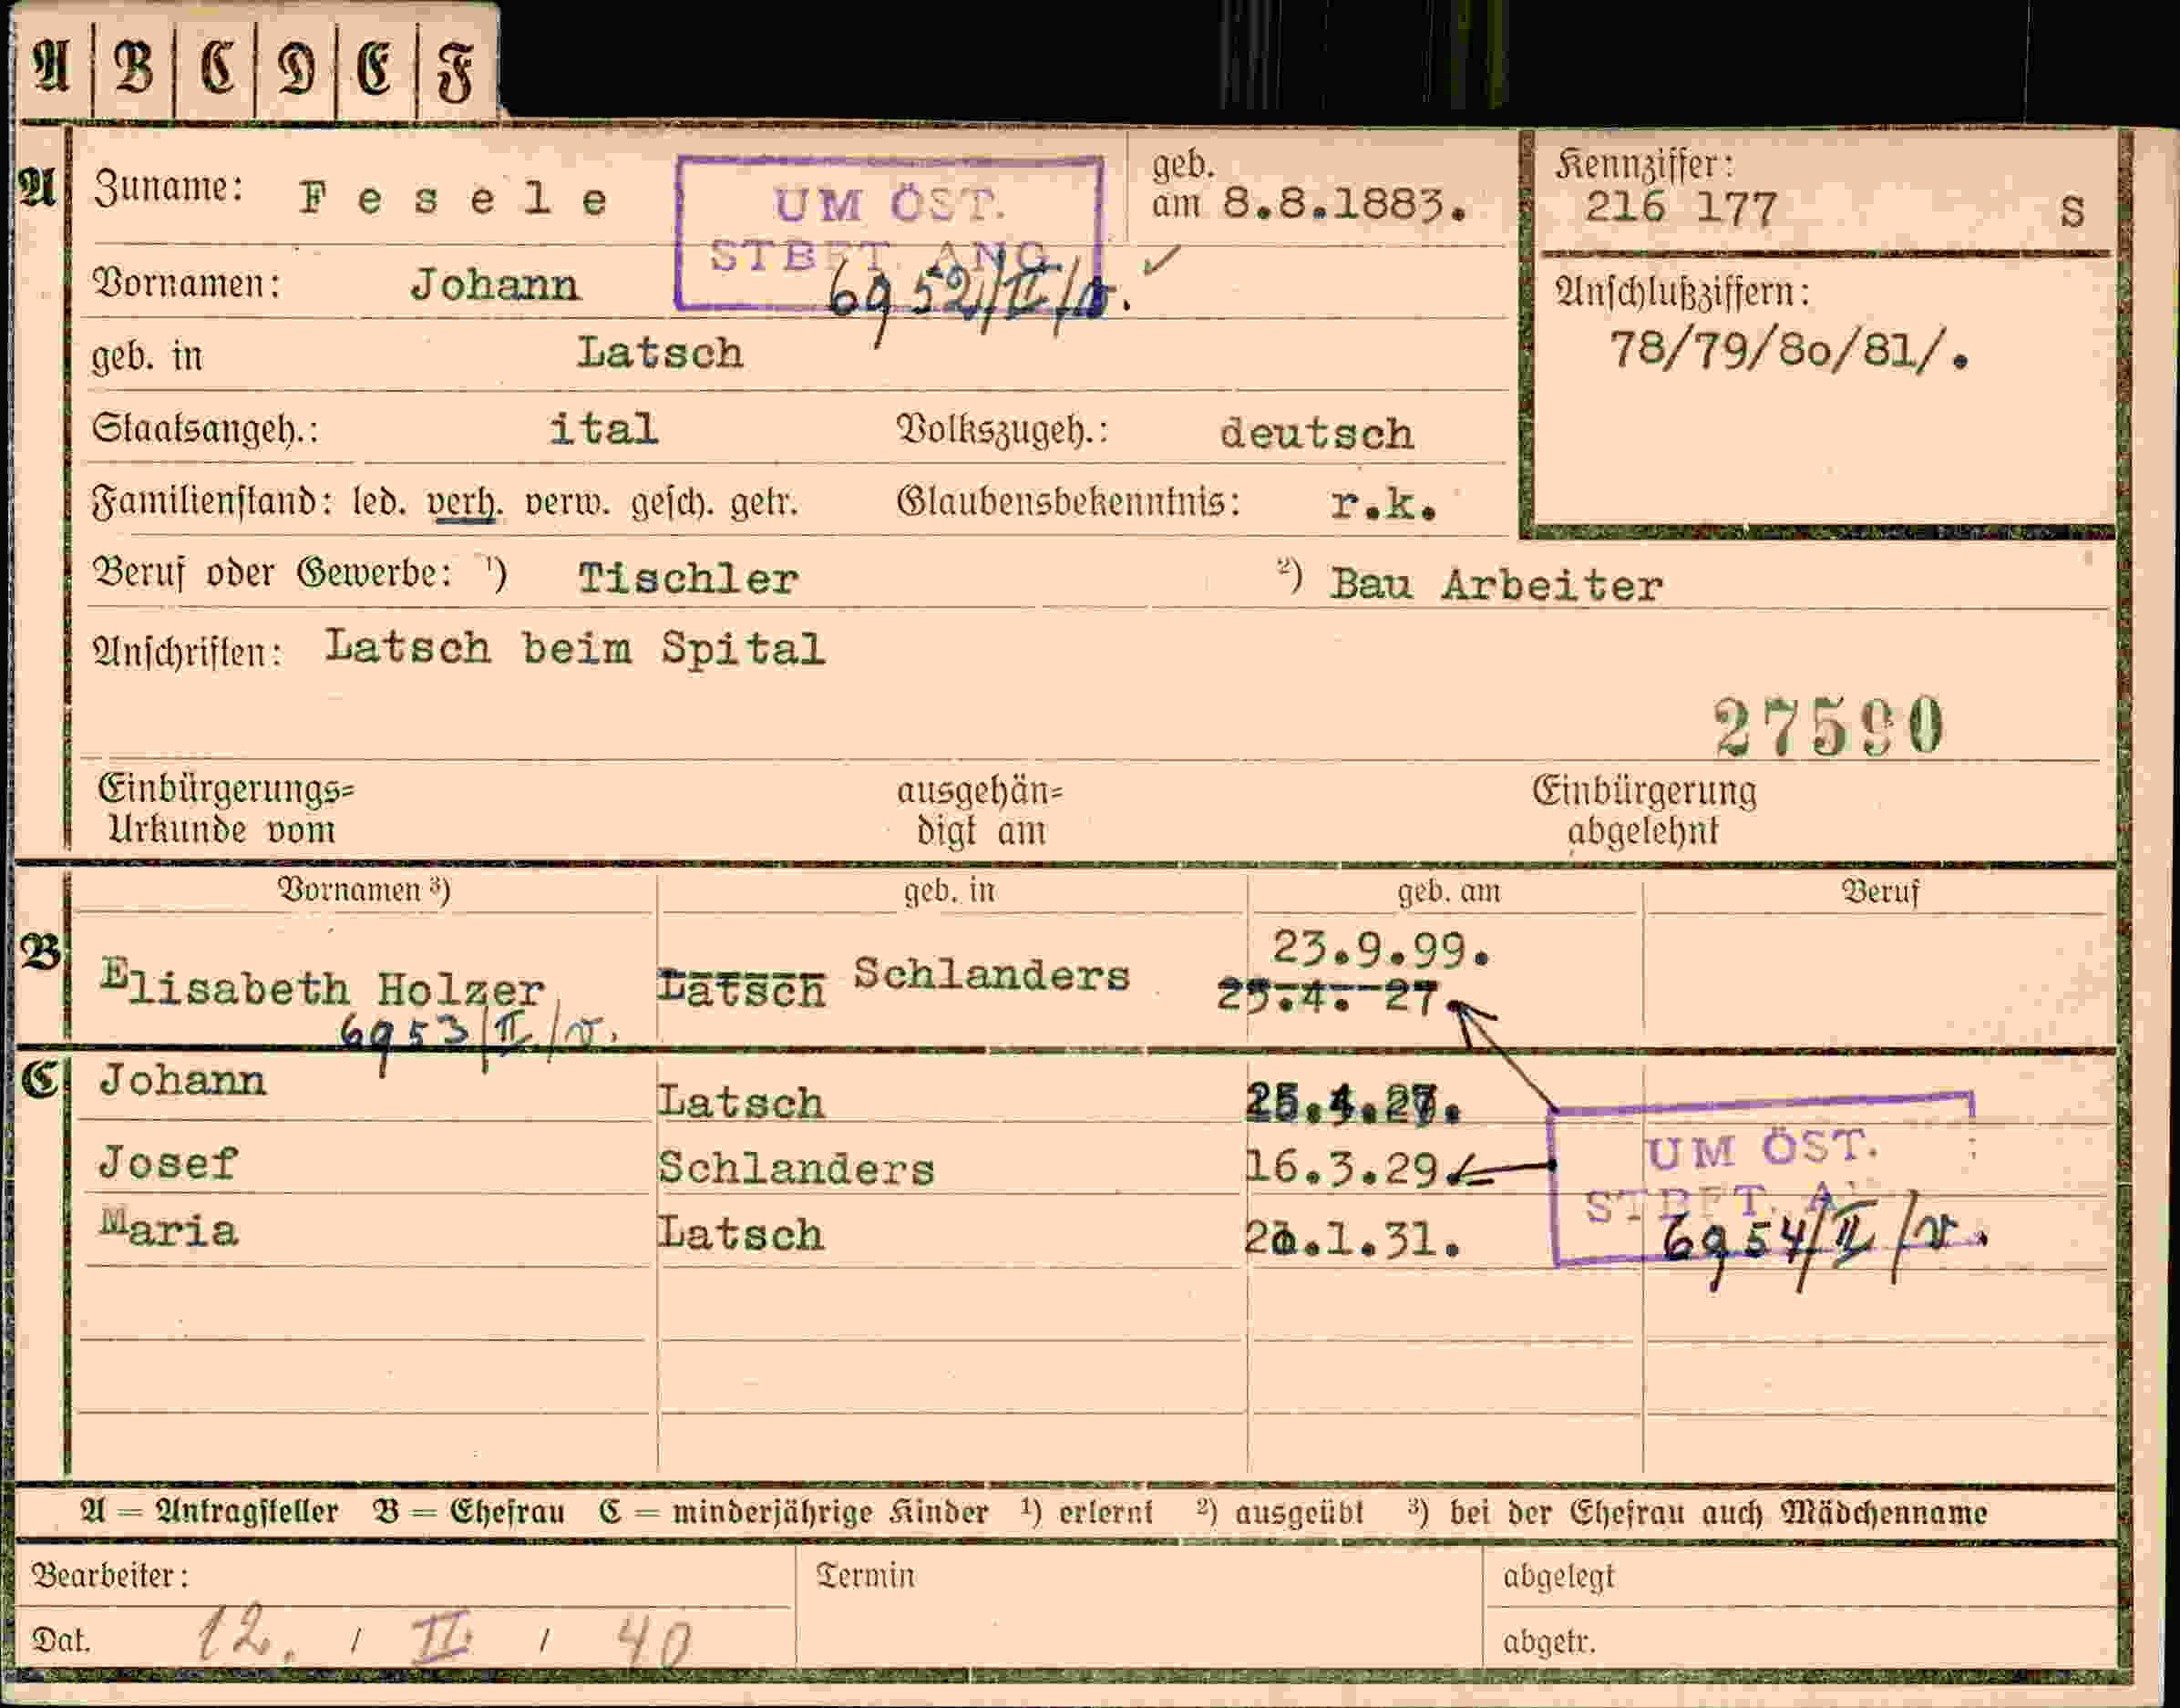 A B C D E F
A Zuname: Fesele
UM ÖST.
STBFT. ANG
6952/II/v.
geb.
am 8.8.1883.
Kennziffer:
216 177 S
Vornamen: Johann
Anschlußziffern:
78/79/80/81/.
geb. in Latsch
Staatsangeh.: ital Volkszugeh.: deutsch
Familienstand: led. verh. verw. gesch. getr. Glaubensbekenntnis: r.k.
Beruf oder Gewerbe: ¹) Tischler ²) Bau Arbeiter
Anschriften: Latsch beim Spital
27590
Einbürgerungs= ausgehän= Einbürgerung
Urkunde vom digt am abgelehnt
Vornamen ³) geb. in geb. am Beruf
23.9.99.
B Elisabeth Holzer Latsch Schlanders 25.4. 27.
6953/II/v.
C Johann Latsch 25.4.27.
Josef Schlanders 16.3.29
Maria Latsch .1.31.
UM ÖST.
STBFT. A
6954/II/v.
A = Antragsteller B = Ehefrau C = minderjährige Kinder ¹) erlernt ²) ausgeübt ³) bei der Ehefrau auch Mädchenname
Bearbeiter: Termin abgelegt
Dat. 12. / II / 40 abgetr.